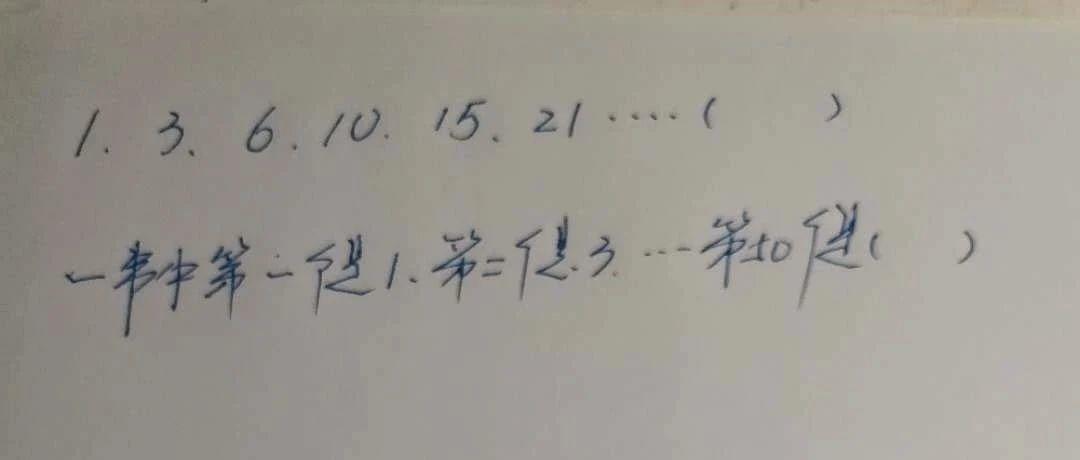 1. 3. 6. 10. 15. 21 ····( )
一串中第一个是1. 第二个是3. ···第50个是( )